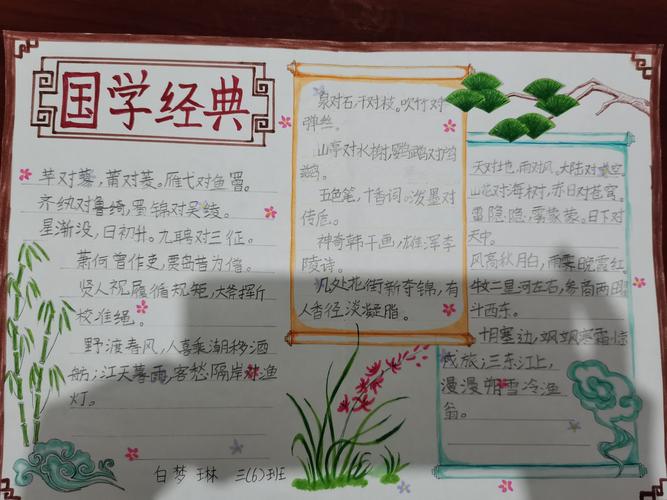 国学经典
芋对
莆对菱。雁弋对鱼罾。
齐纨对鲁绮,蜀锦对吴绫。
星渐没,日初升。九聘对三征。
萧何曾作吏,贾岛昔为僧。
贤人视履循规矩,大斧挥斤
校准绳。
野渡春风,人喜乘潮移酒
舫;江天暮雨,客愁隔岸对渔
灯。
泉对石,干对枝。吹竹对
弹丝。
山亭对水榭,鹦鹉对鸬
鹚。
五色笔,十香词。泼墨对
传卮。
神奇韩干画,雄浑李
陵诗。
几处花街新夺锦,有
人香径淡凝脂。
天对地,雨对风。大陆对长空。
山花对海树,赤日对苍穹。
雷隐隐,雾蒙蒙。日下对
天中。
风高秋月白,雨霁晚霞红。
牛女二星河左右,参商两曜
斗西东。
十月塞边,飒飒寒霜惊
戍旅;三冬江上,
漫漫朔雪冷渔
翁。
白梦琳 三(6)班